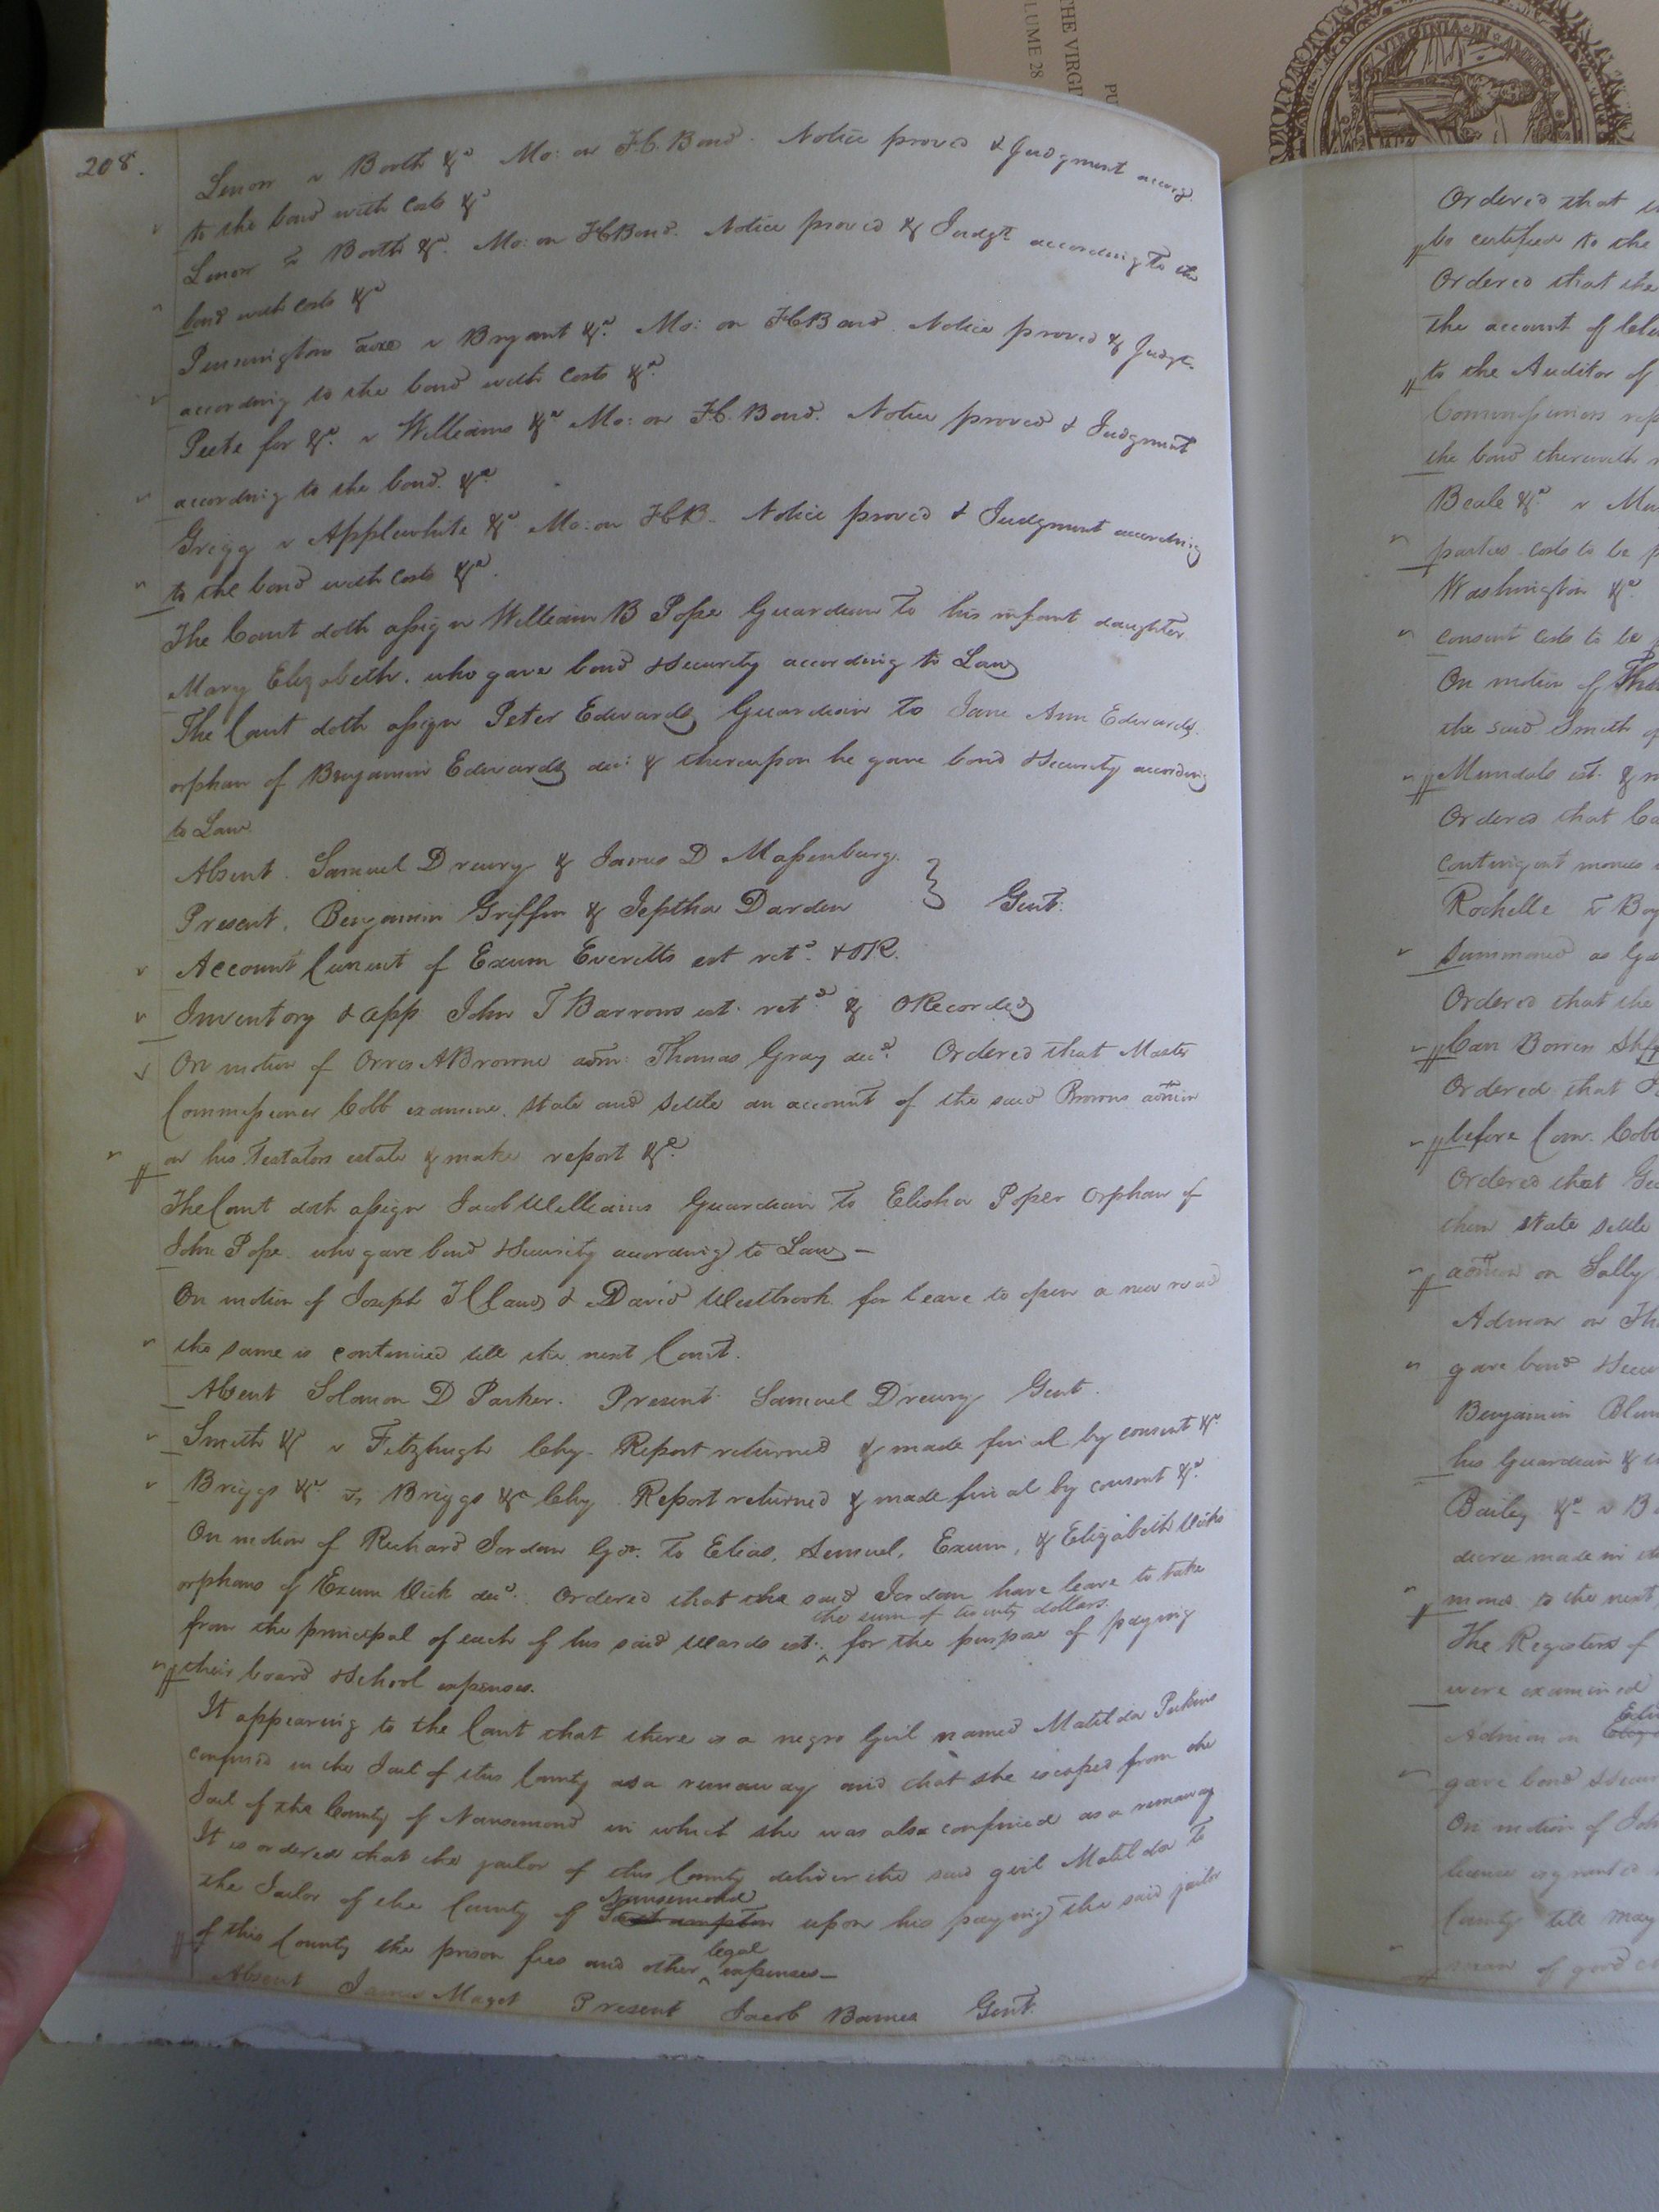 208.
Lenow v Booth &c Mo: on Fth. Bond. Notice proved & Judgment accord.
to the bond with costs &c
Lenow vs Booth &c. Mo: on FthBond. Notice proved & Judgt. according to the
bond with costs &c
Pennington v Bryant &c. Mo: on FthBond. Notice proved & Judgt.
according to the bond with costs &c.
Peete for &c. v Williams &c Mo: on Fth. Bond. Notice proved & Judgment
according to the bond. &c.
Grigg v Applewhite &c Mo: on FthB. Notice proved & Judgment according
to the bond with costs &c.
The Court doth assign William B Pope Guardian to his infant daughter
Mary Elizabeth. who gave bond & Security according to Law
The Court doth assign Peter Edwards Guardian to Jane Ann Edwards.
orphan of Benjamin Edwards dec: & thereupon he gave bond & Security according
to Law.
Absent. Samuel Drewry & James D Massenburg.
Present. Benjamin Griffin & Jeptha Darden } Gent.
Account Current of Exum Everetts est retd. & OR.
Inventory & app John T Barrows est. retd. & ORecorded
On motion of Orris A Browne adm: Thomas Gray decd. Ordered that Master
Commissioner Cobb examine. state and settle an account of the said Browns admon
on his testators estate & make report &c.
The Court doth assign Jacob Williams Guardian to Elisha Pope orphan of
John Pope who gave bond & Security according to Law —
On motion of Joseph T Claud & David Westbrook for leave to open a new road
the same is continued till the next Court.
Absent Solomon D Parker. Present Samuel Drewry Gent.
Smith &c v Fitzhugh Chy. Report returned & made final by consent &c.
Briggs &c. vs Briggs &c Chy. Report returned & made final by consent &c.
On motion of Richard Jordan Gdn. to Elias, Samuel, Exum, & Elizabeth Vicks
orphans of Exum Vick decd. Ordered that the said Jordan have leave to take
the sum of twenty dollars.
from the principal of each of his said wards est. ^ for the purpose of paying
their board & School expenses.
It appearing to the Court that there is a negro Girl named Matilda Perkins
confined in the Jail of this County as a runaway and that she escaped from the
Jail of the County of Nansemond in which she was also confined as a runaway
It is ordered that the jailor of this County deliver the said girl Matilda to
Nansemond
the Jailor of the County of Southampton upon his paying the said jailor
legal
of this County the prison fees and other ^ expenses —
Absent James Maget Present Jacob Barnes Gent.
THE VIRGI
LUME 28
PU
VIRGINIA IN
Ordered that
be certified to the
Ordered that the
the account of
to the Auditor of
Commissioners rep
the bond therewith
Beale &c v
parties costs to be
Washington &c.
consent costs to be
On motion of
the said Smith
Mundals est. &
Ordered that
contingent monies
Rochelle vs
summoned as
Ordered that the
Ordered that
before Com. Cobb
Ordered that
them state settle
admon on Sally
Admon on
gave bond & Secur
Benjamin
his Guardian &
Bailey &c v B
decree made in
to the next
The Registers of
were examined
Admon on
gave bond & Secur
On motion of John
licence is granted
County till may
man of good